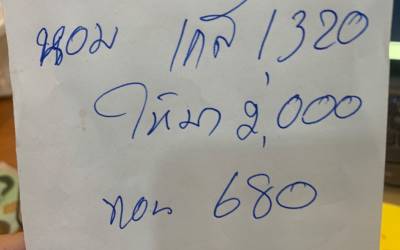 หอม แก๊ส 1,320
ให้มา 2,000
ทอน 680